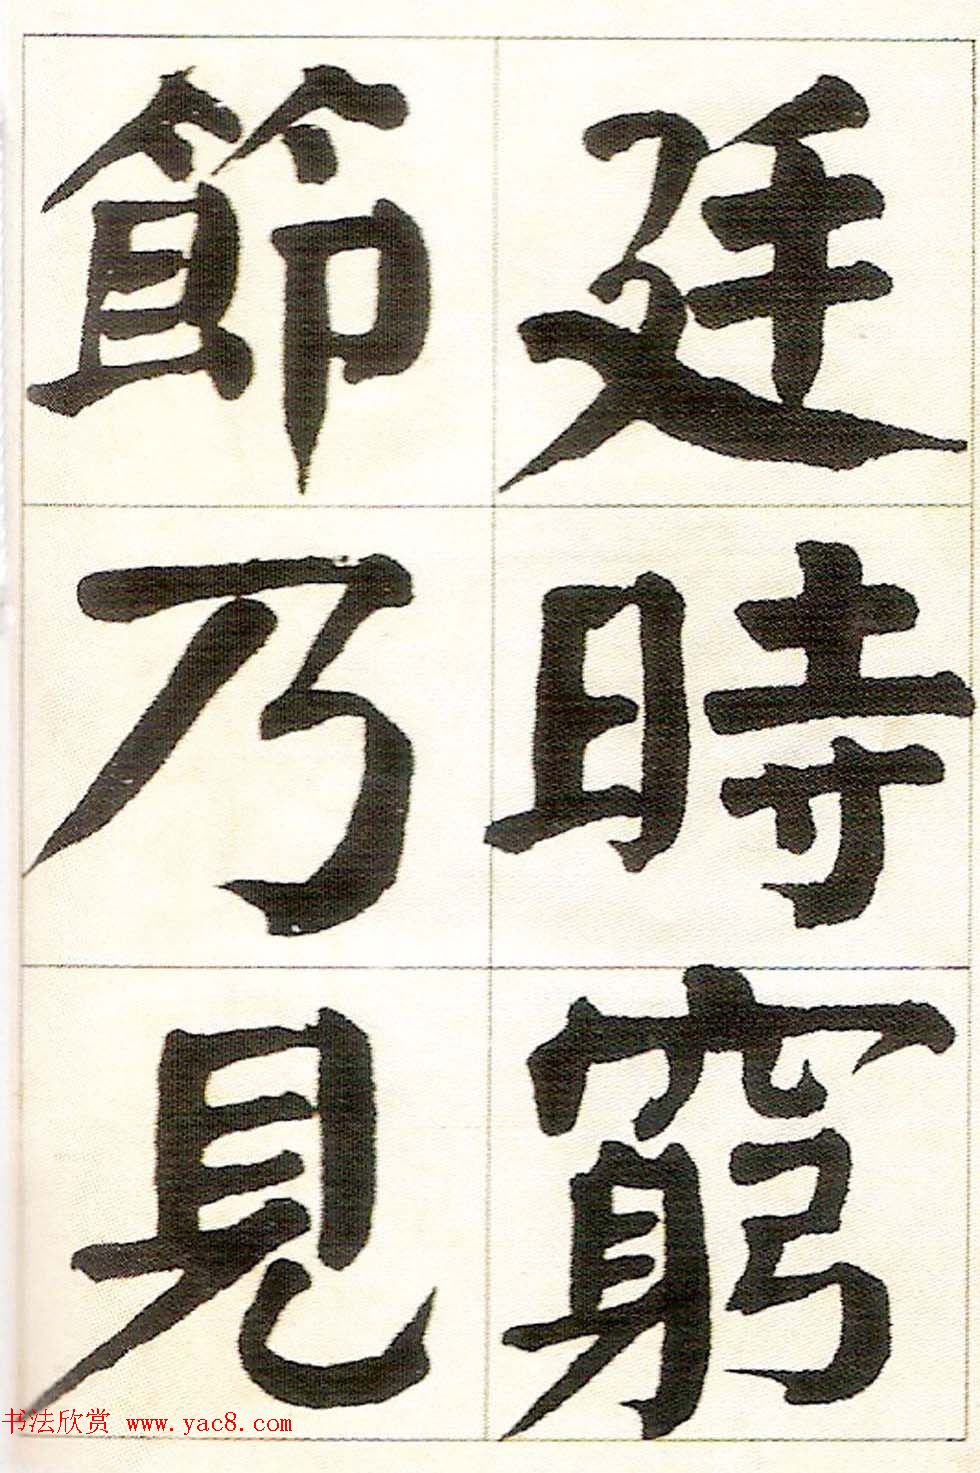 廷時窮
節乃見
书法欣赏 www.yac8.com